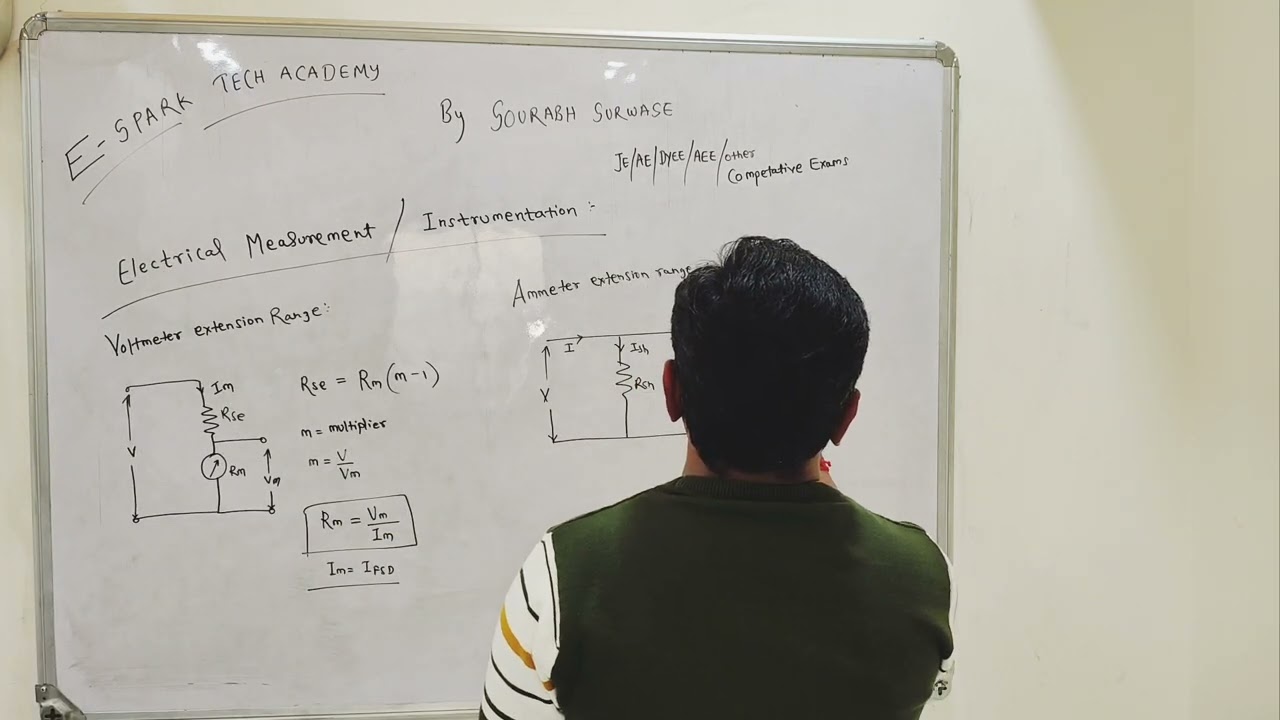 E-SPARK TECH ACADEMY
By SOURABH SURWASE
JE/AE/DYEE/AEE/other
Competative Exams
Electrical Measurement / Instrumentation :-
Voltmeter extension Range:-
Im
Rse
V
Rm
Vm
Rse = Rm(m-1)
m = multiplier
m = V/Vm
Rm = Vm/Im
Im = IFSD
Ammeter extension range
I
Ish
Rsh
V